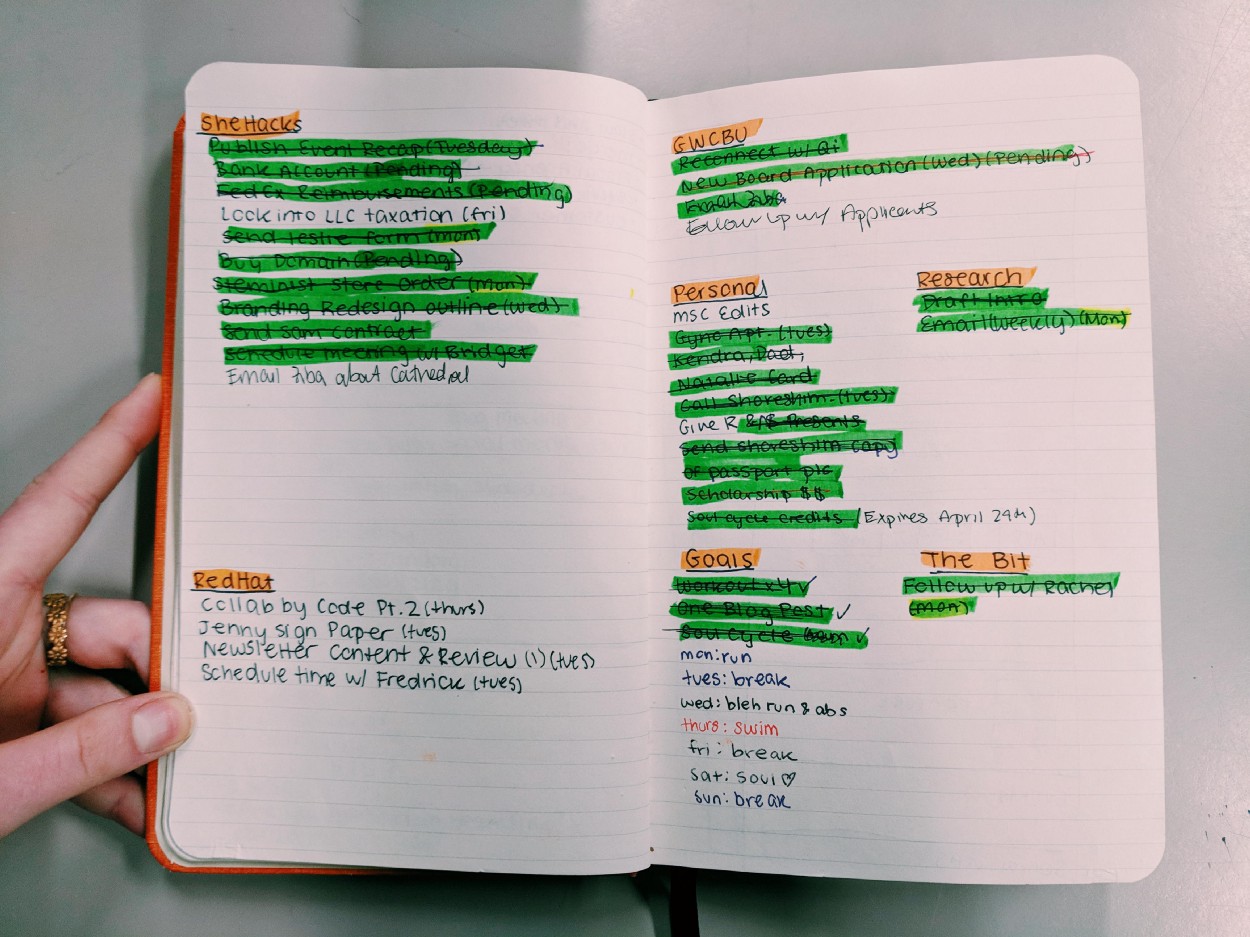 SheHacks
Publish Event Recap (Tuesday)
Bank Account (Pending)
FedEx Reimbursements (Pending)
Look into LLC taxation (fri)
Send Leslie form (mon)
Buy Domain (Pending)
Steminist Store Order (Mon)
Branding Redesign outline (wed)
Send Sam Contract
Schedule meeting w/ Bridget
Email Ziba about Cathedral
RedHat
Collab by Code Pt. 2 (thurs)
Jenny sign Paper (tues)
Newsletter Content & Review (1) (tues)
Schedule time w/ Fredrick (tues)
GWCBU
Reconnect w/ Qi
New Board Application (Wed) (Pending)
Email Ziba
Follow up w/ Applicants
Personal
msc Edits
Gyno Apt. (tues)
Kendra, Dad,
Natalie Card
Call Shoreshim (tues)
Give R & Presents
Send shoreshim copy
of passport pic
Scholarship $$
Soul cycle credits (Expires April 29th)
Research
Draft Intro
Email (weekly) (Mon)
Goals
Workout x4 ✓
One Blog Post ✓
Soul Cycle ✓
mon: run
tues: break
wed: bleh run & abs
thurs: swim
fri: break
sat: soul ♡
sun: break
The Bit
Follow up w/ Rachel
(Mon)